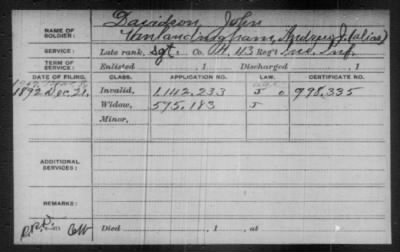 Davidson, John
NAME OF SOLDIER: Vanlandingham, Andrew J. (alias)
SERVICE: Late rank, Sgt. Co. H, 43 Reg't Ind. Inf.
TERM OF SERVICE: Enlisted , 1 Discharged , 1
DATE OF FILING. CLASS. APPLICATION NO. LAW. CERTIFICATE NO.
1892 Dec. 21, Invalid, 1.142.233 J 998.335
Widow, 575.183 J
Minor,
ADDITIONAL SERVICES:
REMARKS:
Died , 1 , at